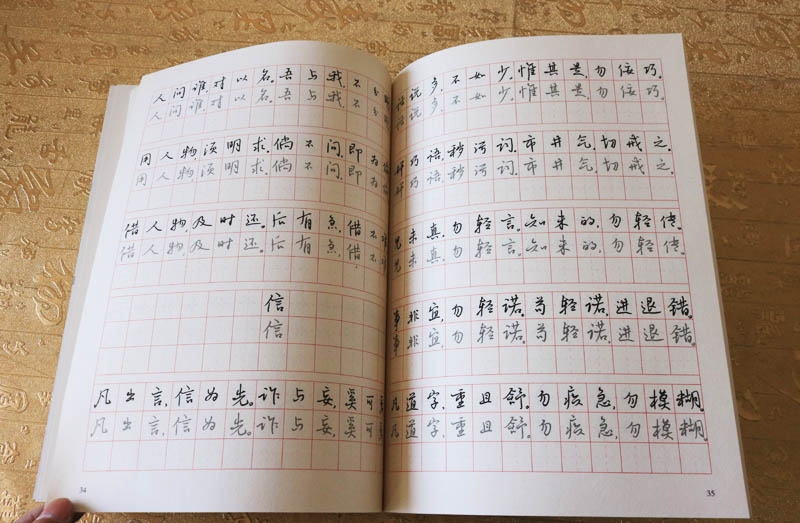 人问谁,对以名。吾与我,不分
人问谁,对以名。吾与我,不分
用人物,须明求,倘不问,即为
用人物,须明求,倘不问,即为
借人物,及时还。后有急,借不
借人物,及时还。后有急,借不
信
信
凡出言,信为先。诈与妄,奚可
凡出言,信为先。诈与妄,奚可
34
话说多,不如少,惟其是,勿佞巧。
话说多,不如少,惟其是,勿佞巧。
奸巧语,秽污词,市井气,切戒之。
奸巧语,秽污词,市井气,切戒之。
见未真,勿轻言。知未的,勿轻传。
见未真,勿轻言。知未的,勿轻传。
事非宜,勿轻诺。苟轻诺,进退错。
事非宜,勿轻诺。苟轻诺,进退错。
凡道字,重且舒。勿疾急,勿模糊。
凡道字,重且舒。勿疾急,勿模糊。
35